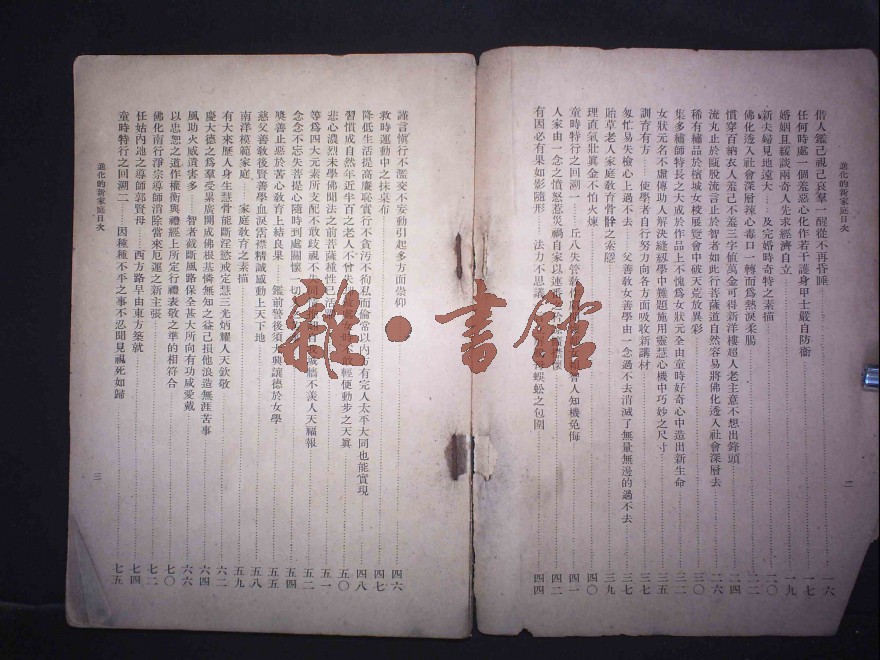 進化的新家庭目次
借人鑑己視己哀羣一醒從不再昏睡 一六
任何時處一個羞惡心化作若干護身甲士嚴自防衞 一七
婚姻且緩談兩奇人先求經濟自立 一九
新夫婦見地遠大 及完婚時奇特之素描 二〇
佛化透入社會深層辣心毒口一轉而爲熱淚柔腸 二二
慣穿百衲衣人羞己不羞三字値萬金可得新洋樓超人老主意不想出鋒頭 二四
流丸止於甌脫流言止於智者如此行菩薩道自然容易將佛化透入社會深層去 二六
稀有繡品於檳城女校展覽會中破天荒放異彩 三〇
集多繡師特長之大成於作品上不愧爲女狀元全由童時好奇心中造出新生命 三二
女狀元名不虛傳助人解決縫級學中難題施用靈慧心機中巧妙之尺寸 三五
訓育有方 使學者自行努力向各方面吸收新講材 三七
匆忙易失檢心上過不去 父善敎女菡學由一念過不去消滅了無量無邊的過不去 三七
貽草老人家庭敎育骨幹之素膠 三九
理直氣壯眞金不怕火煉 四〇
童時特行之回溯一 丘八失管敎 人知機免侮 四一
人家由一念之憤怒惹災禍自家以連 四二
有因必有果如影隨形 法力不思議 蜈蚣之包圍 四四
二
謹言愼行不濫交不妄動引起多方面崇仰 四六
救時運動中之抹桌布 四七
降低生活提高廉恥實行不貪污不徇私而倫常以內方有完人太平大同也能實現 四八
習慣成自然年近半百之老人不曾失 輕便動步之天眞 五〇
悲心濃烈未學佛聞法之前菩薩種性已活
等爲四大元素所支配不敢歧視不 不羨人天福報 五二
念念不忘失菩提心隨時到處關懷 一切 五四
獎善止惡於苦心敎育上結良果 鑑前警後須大興讓德於女學 五五
慈父善敎後賢善學血淚霑襟精誠感動上天下地 五八
南洋模範家庭 家庭敎育之素描 五九
有大來歷人身生慧骨能斷淫慾戒定慧三光炳耀人天欽敬 六二
慶大德之爲羣受累廣開成佛根基憐無知之益己損他浪造無涯苦事 六四
風助火威遺害多 智者截斷風路保全甚大所向有功咸愛戴 六六
以忠恕之道作權衡與禮經上所定行禮表敬之準的相符合 七〇
佛化南行淨宗導師消除當來厄運之新主張 七二
任姑內地之導師郭賢母 西方路早由東方築就 七四
童時特行之回溯二 因種種不平之事不忍聞見視死如歸 七五
進化的新家庭目次
三
雜·書館